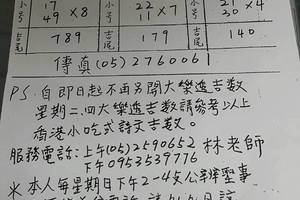 小号 17 49 ×8 小号 22 11 ×7 小号 21 30 ×4
吉尾 789 吉尾 179 吉尾 140
傳真(05)2760061
PS. 自即日起不再另開大樂透吉数
星期二.四大樂透吉数請參考以上
香港小吃式詩文吉数。
服務電話:上午(05)2590652 林老師
下午0953539776
※本人每星期日下午2-4支公